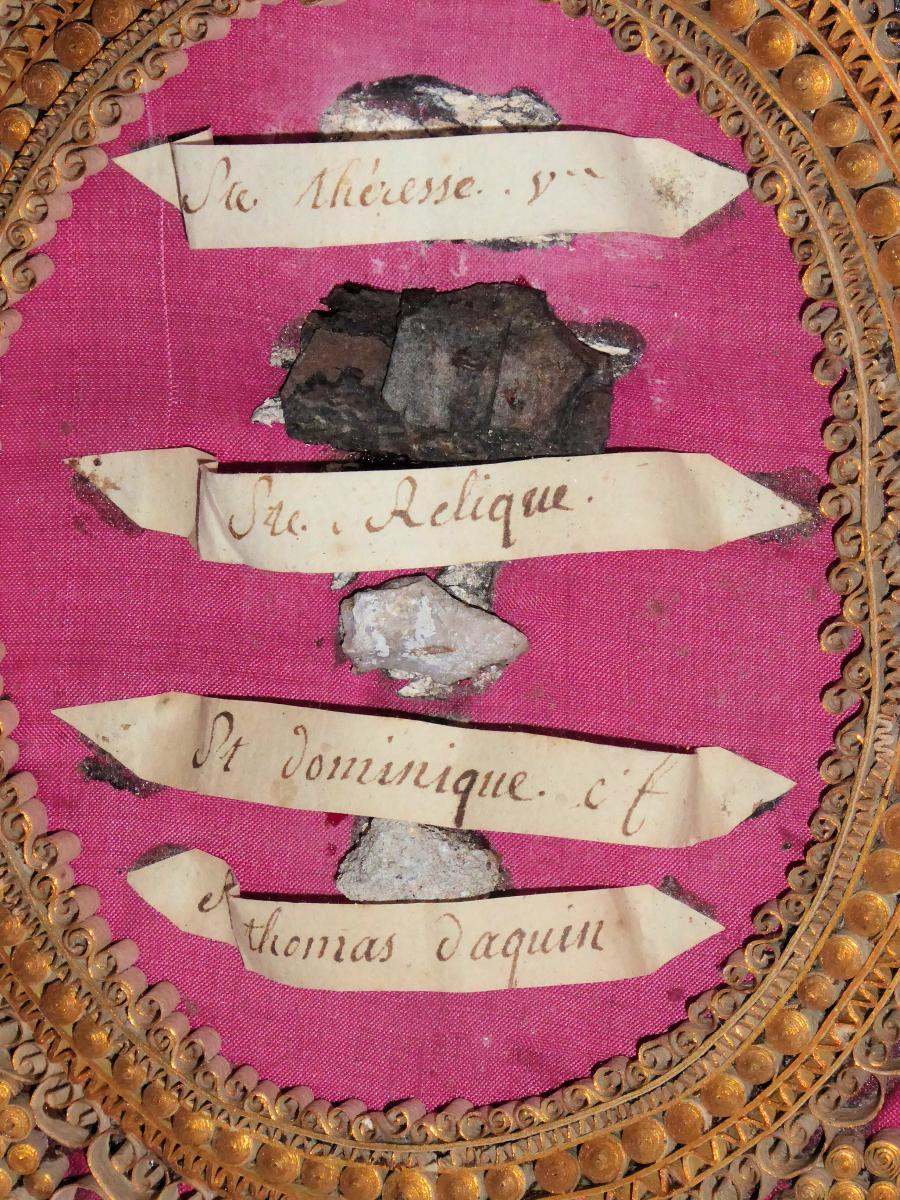 Ste thèresse. . v
Ste. Relique.
St dominique. c f
thomas daquin